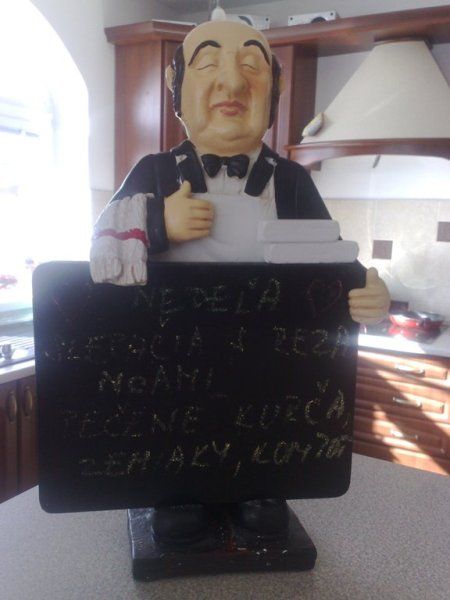 NEDEĽA
SLEPAČIA S REZA
NCAMI
PEČENÉ KURČA,
ZEMIAKY, KOMPÓT